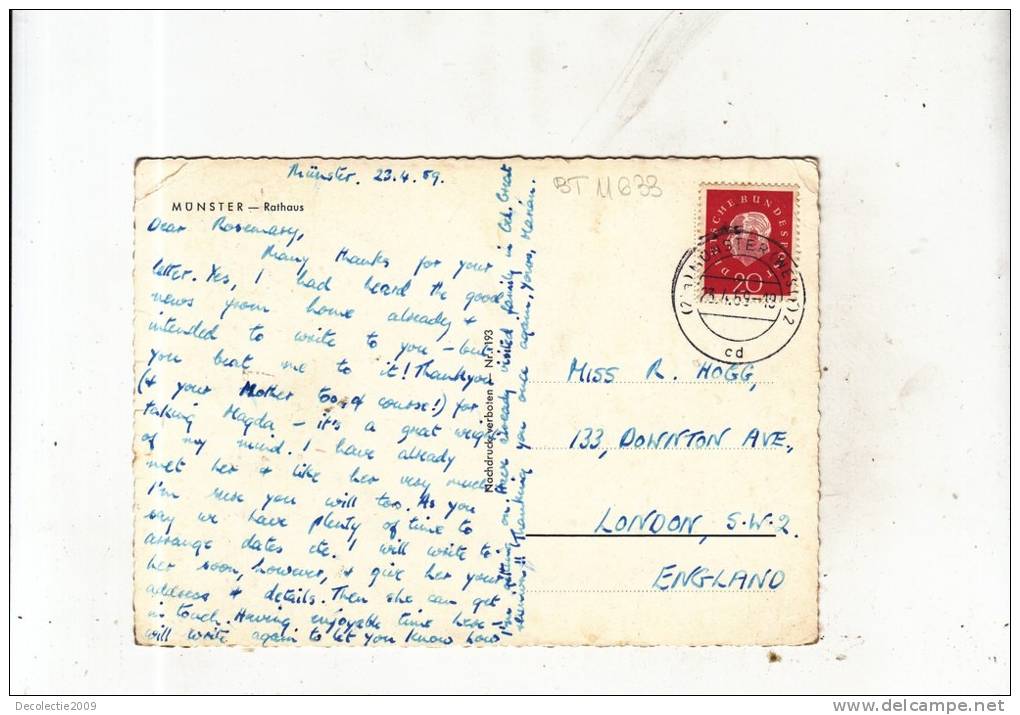 Münster. 23.4.59.
MÜNSTER — Rathaus
Dear Rosemary,
Many thanks for your
letter. Yes, I had heard the good
news from home already &
intended to write to you – but
you beat me to it! Thankyou
(& your Mother too, of course!) for
taking Magda – it's a great weight
of my mind. I have already
met her & like her very much
I'm sure you will too. As you
say we have plenty of time to
arrange dates etc. I will write to
her soon, however, & give her your
address & details. Then she can get
in touch. Having enjoyable time here –
will write again to let you know how
I'm getting on. Have already visited family in Great
Thanking you once again, Yours, Marian.
Nachdruck verboten Nr. 1193
BT 11633
DEUTSCHE BUNDESPOST
20
MÜNSTER (WESTF) 2
23.4.59-18
cd
MISS R. HOGG,
133, DOWNTON AVE,
LONDON, S.W.2.
ENGLAND
Decolectie2009
www.delcampe.net